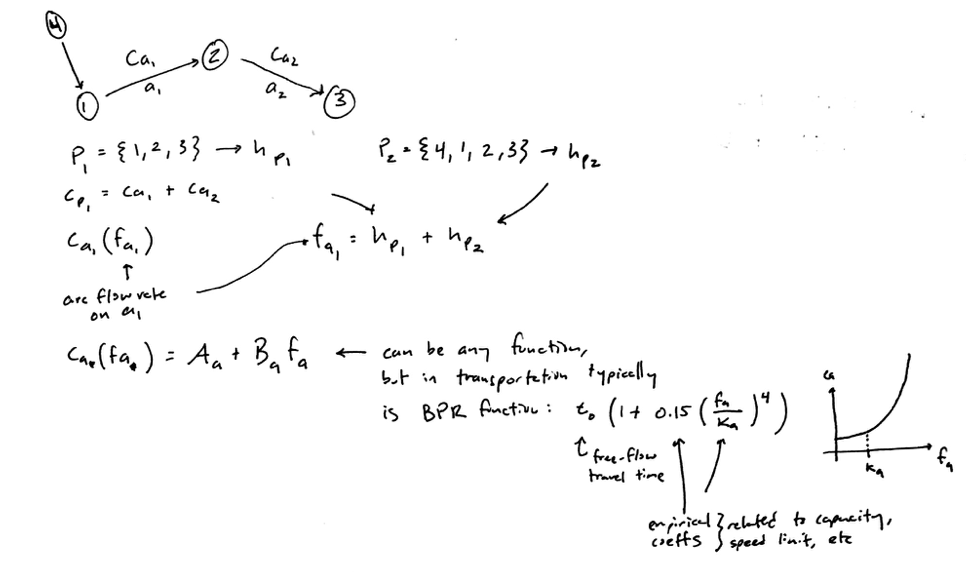 4
Ca₁ 2 Ca₂
1 a₁ a₂ 3
P₁ = {1, 2, 3} → h_P₁ P₂ = {4, 1, 2, 3} → h_P₂
C_P₁ = Ca₁ + Ca₂
Ca₁(fa₁) fa₁ = h_P₁ + h_P₂
↑
arc flow rate
on a₁
Ca(fa) = Aa + Ba fa ← can be any function,
but in transportation typically
is BPR function: t₀ (1 + 0.15 (fa/Ka)⁴)
free-flow
travel time
Ca
Ka fa
empirical } related to capacity,
coeffs } speed limit, etc